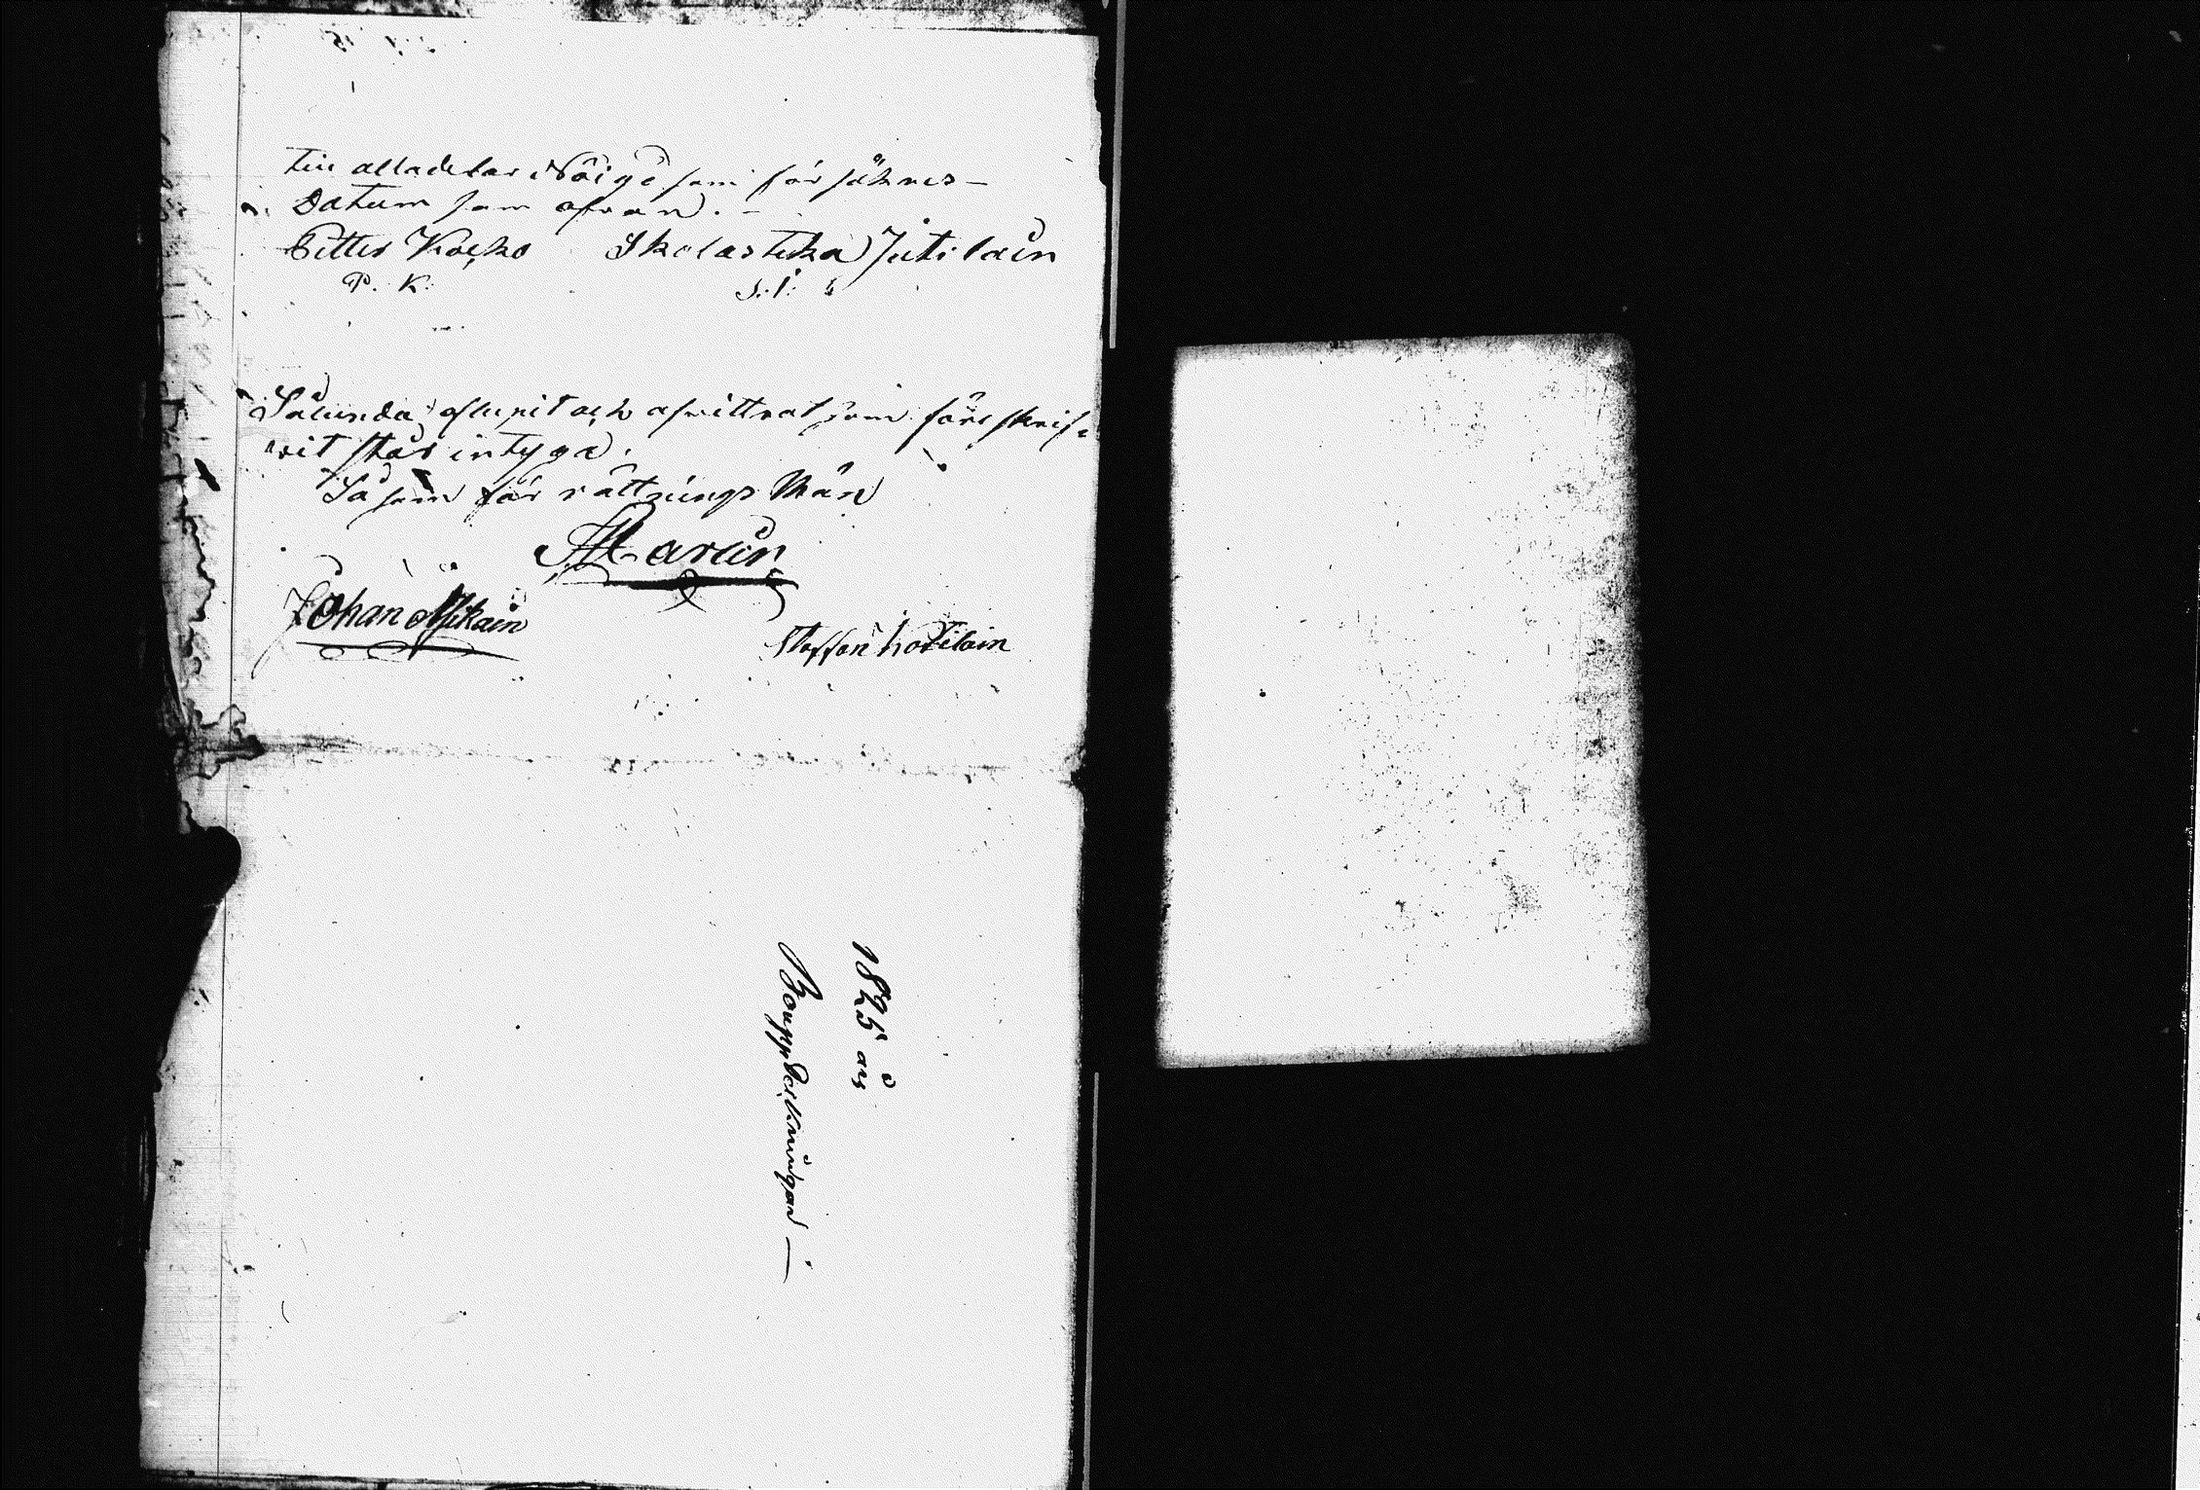 till alla delar Nöige som försäkras —
Datum som ofvan. —
Petter Kocko Skolastika Jutilain
P. K. S. J.
Sålunda aflupit och afvittrat somföreskrif-
vit står intyga.
Så som förrättnings Män
Johan Mikain
Staffan
1825 års
Bouppteckningan —